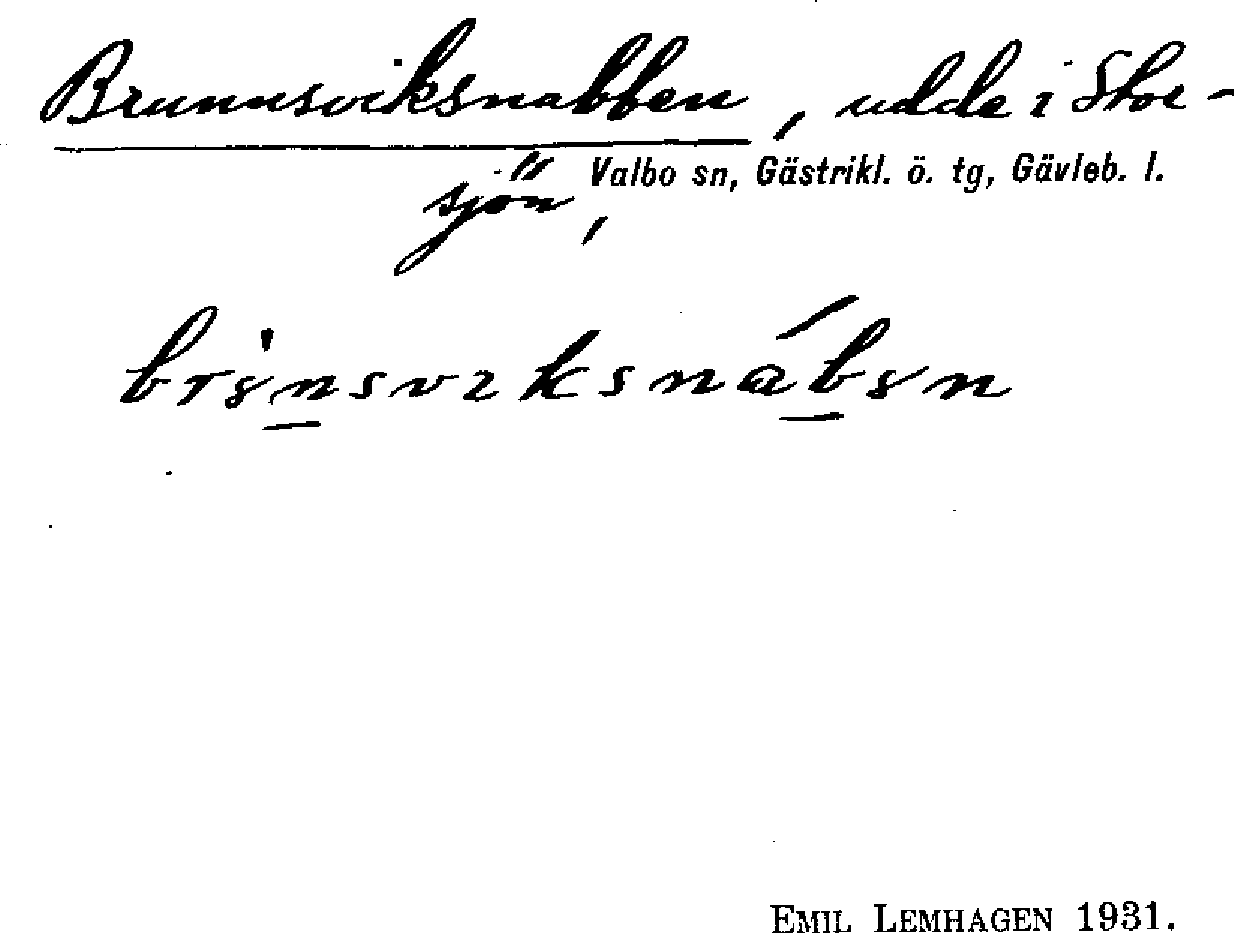 Brunnsviksnabben, udde i Stor-
sjön, Valbo sn, Gästrikl. ö. tg, Gävleb. l.
EMIL LEMHAGEN 1931.